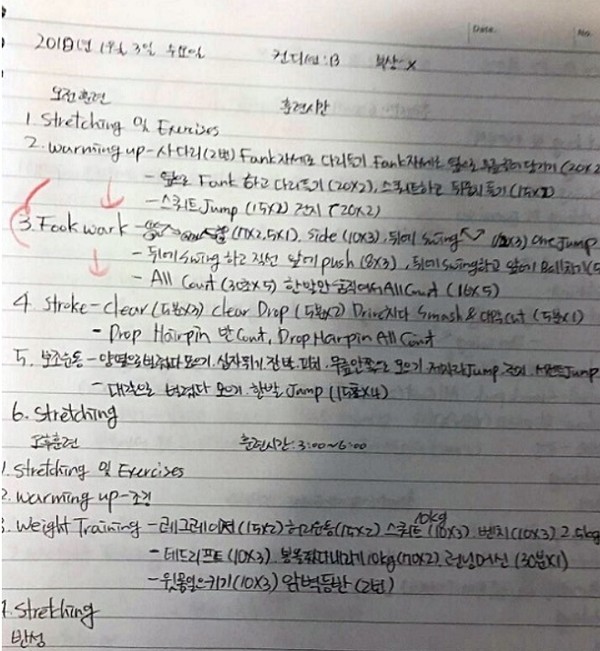 Date. No.
2018년 1월 3일 수요일 컨디션:B 부상:X
오전훈련 훈련시간
1. Stretching 및 Exercises
2. Warming up - 사다리(2번) Fank자세로 다리들기 Fank자세로 앞으로 무릎 당기기 (20x2
- 앞으로 Fank 하고 다리들기 (20x2), 스쿼트하고 뒤꿈치들기 (15x2)
- 스쿼트 Jump (15x2) 런지 (20x2)
3. Fook wark - (10x2, 5x1), Side (10x3), 뒤에 Swing (10x3) one Jump
- 뒤에 Swing 하고 직선 앞에 push (8x3), 뒤에 Swing하고 앞에
- All Court (30초x5) 한발만 움직여서 All Court (16x5)
4. Stroke - Clear (5분x3) Clear Drop (5분x2) Drive치다 Smash & 대각 cut (5분x1)
- Drop Hairpin 반Cout, Drop Hairpin All Cout
5. 보조운동 - 양옆으로 벌렸다 모으기. 십자뛰기. 무릎 안쪽으로 모으기. 제자리 Jump. Jump
- 대각으로 벌렸다 모으기. 한발 Jump (15초x4)
6. Stretching
오후훈련 훈련시간: 3:00~6:00
1. Stretching 및 Exercises
2. Warming up - 조깅
3. Weight Training - 레그레이즈 (15x2) 허리운동(15x2) 스쿼트 10kg (10x3). 벤치 (10x3) 2.5kg
- 데드리프트 (10x3). 10kg (70x2) 런닝머신 (30분x1)
- 윗몸일으키기 (10x3) 암벽등반 (2번)
7. Stretching
반성